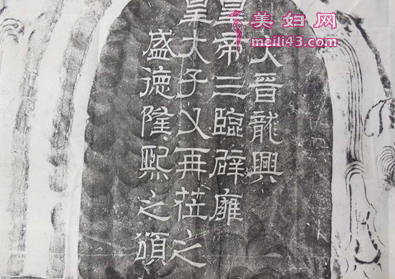 美妇网
meili43.com
大晋龍興
皇帝三臨辟雍
皇太子又再莅之
盛德隆熙之頌